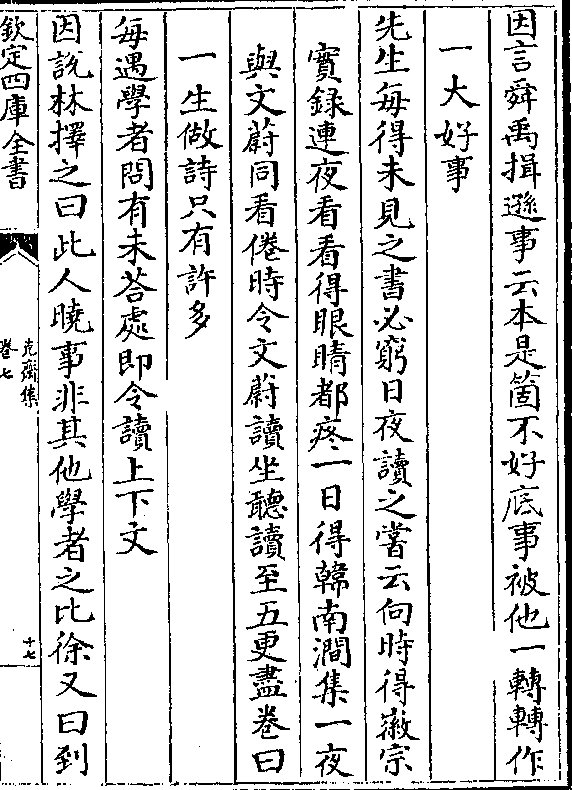 因言舜禹揖遜事云本是箇不好底事被他一轉轉作
一大好事
先生每得未見之書必窮日夜讀之嘗云向時得徽宗
實録連夜看看得眼睛都疼一日得韓南澗集一夜
與文蔚同看倦時令文蔚讀坐聽讀至五更盡卷曰
一生做詩只有許多
每遇學者問有未荅處即令讀上下文
因説林擇之曰此人曉事非其他學者之比徐又曰到
欽定四庫全書
克齋集
卷七
十七